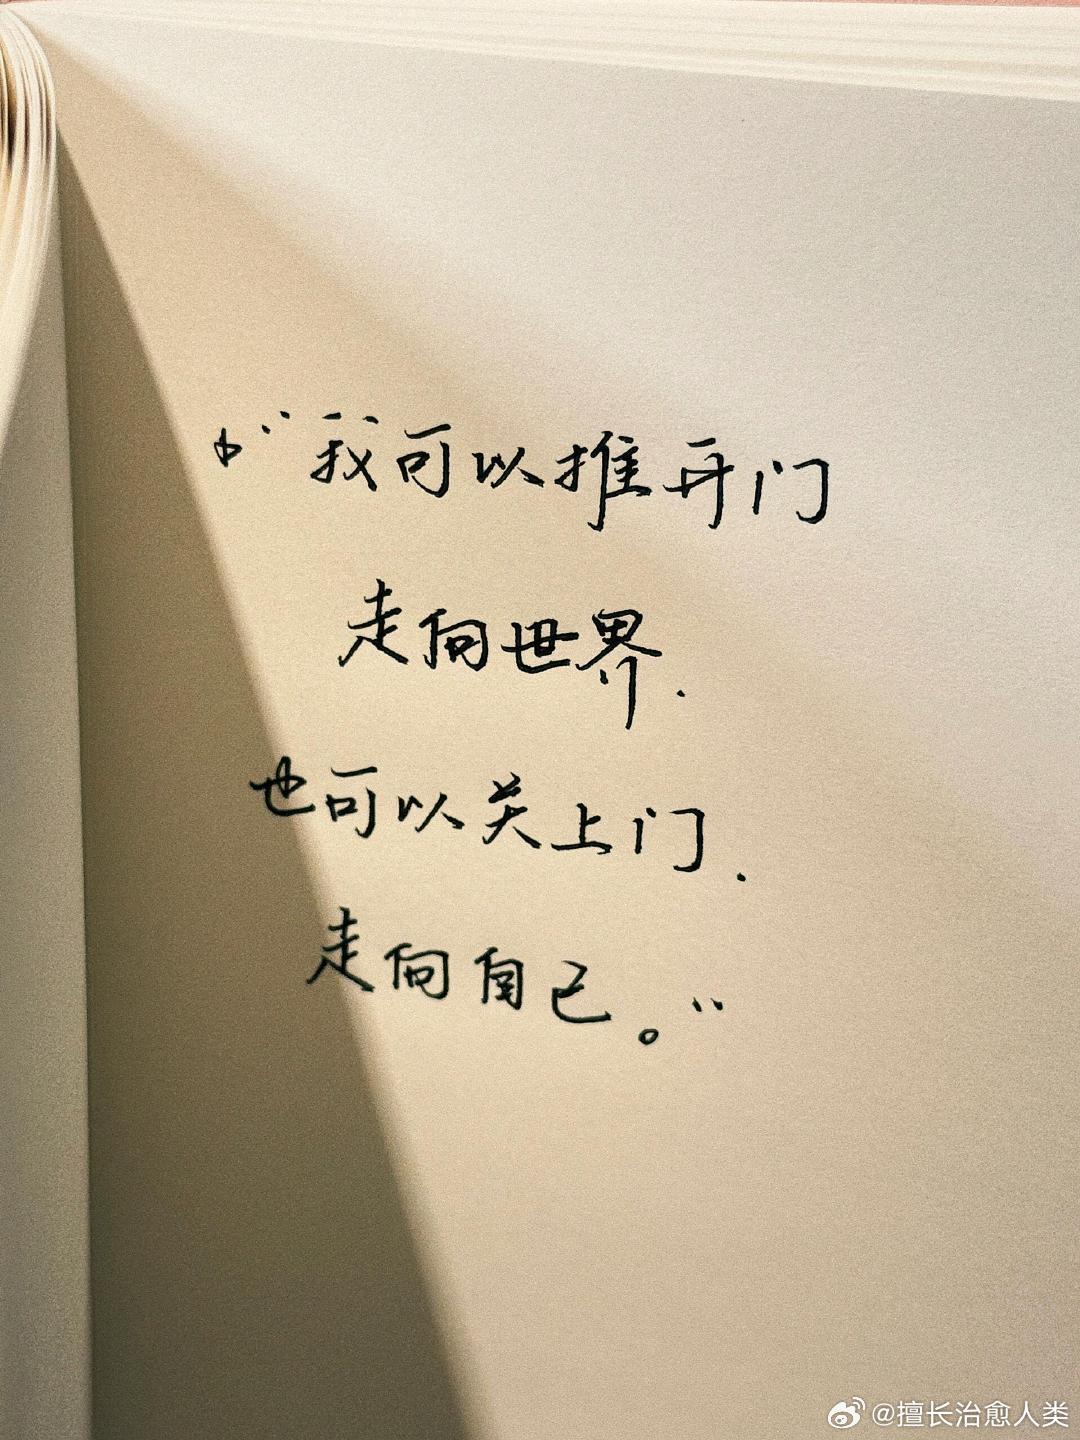 “我可以推开门
走向世界.
也可以关上门.
走向自己。”
@擅长治愈人类